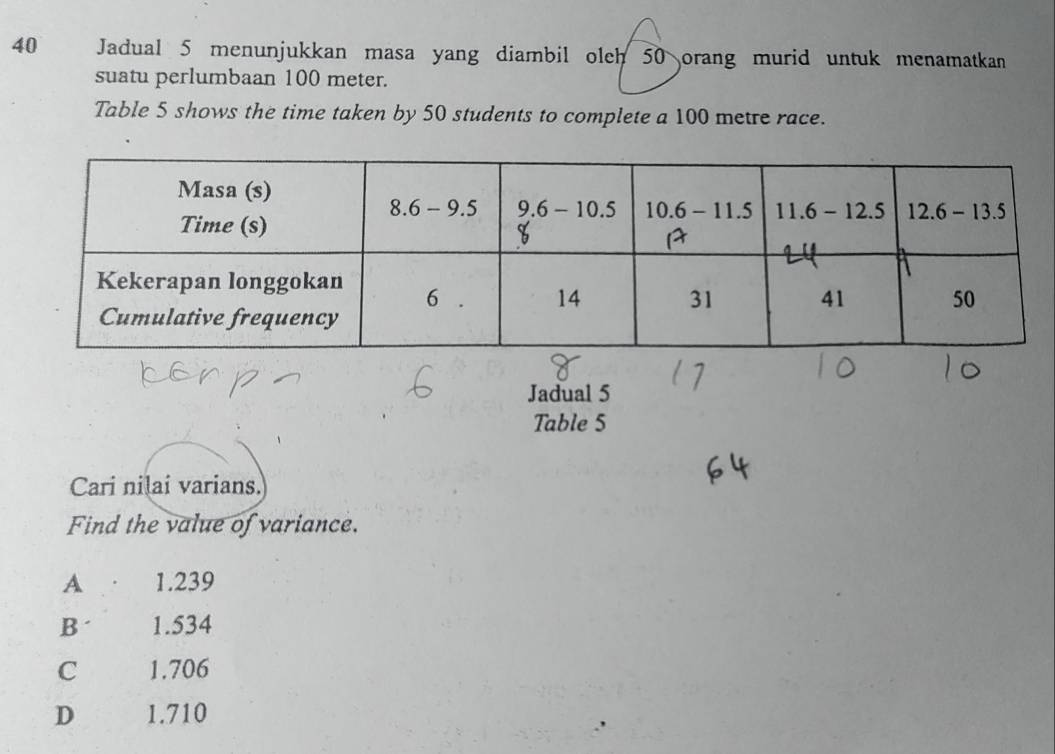 40 Jadual 5 menunjukkan masa yang diambil oleh 50 orang murid untuk menamatkan
suatu perlumbaan 100 meter.
Table 5 shows the time taken by 50 students to complete a 100 metre race.
Masa (s)
Time (s)
8.6 – 9.5 9.6 – 10.5 10.6 – 11.5 11.6 – 12.5 12.6 – 13.5
8 17 24 9
Kekerapan longgokan
Cumulative frequency
6 14 31 41 50
6 8 17 10 10
Jadual 5
Table 5
64
Cari nilai varians.
Find the value of variance.
A 1.239
B 1.534
C 1.706
D 1.710